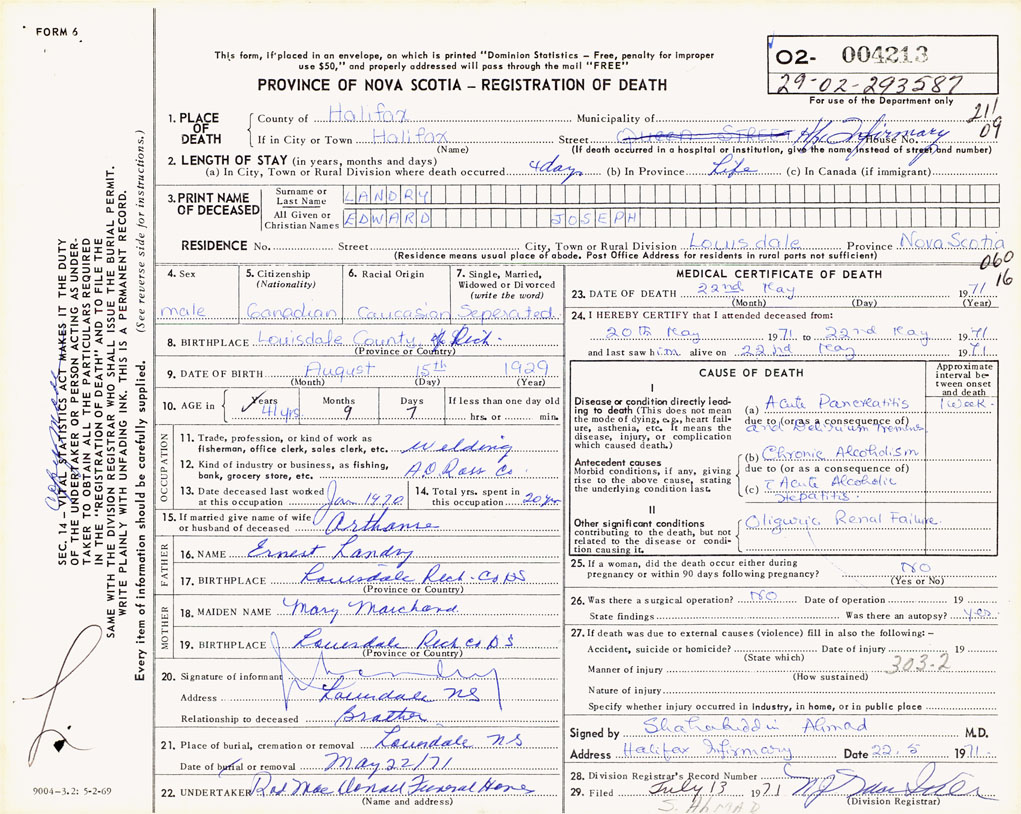 FORM 6
This form, if placed in an envelope, on which is printed "Dominion Statistics – Free, penalty for improper
use $50," and properly addressed will pass through the mail "FREE"
PROVINCE OF NOVA SCOTIA – REGISTRATION OF DEATH
02- 004213
29-02-293587
For use of the Department only
21/09
1. PLACE OF DEATH
County of Halifax Municipality of
If in City or Town Halifax Street QUEEN STREET Hfx Infirmary House No.
(Name) (If death occurred in a hospital or institution, give the name instead of street and number)
2. LENGTH OF STAY (in years, months and days)
(a) In City, Town or Rural Division where death occurred 4 days (b) In Province Life (c) In Canada (if immigrant)
3. PRINT NAME OF DECEASED
Surname or Last Name LANDRY
All Given or Christian Names EDWARD JOSEPH
RESIDENCE No. Street City, Town or Rural Division Louisdale Province Nova Scotia
(Residence means usual place of abode. Post Office Address for residents in rural parts not sufficient)
060
16
4. Sex male
5. Citizenship (Nationality) Canadian
6. Racial Origin Caucasian
7. Single, Married, Widowed or Divorced (write the word) Seperated
8. BIRTHPLACE Louisdale County of Rich.
(Province or Country)
9. DATE OF BIRTH August 15th 1929
(Month) (Day) (Year)
10. AGE in Years 41 yrs Months 9 Days 7 If less than one day old hrs. or min.
OCCUPATION
11. Trade, profession, or kind of work as
fisherman, office clerk, sales clerk, etc. Welding
12. Kind of industry or business, as fishing,
bank, grocery store, etc. A.D. Ross Co
13. Date deceased last worked
at this occupation Jan 1970
14. Total yrs. spent in
this occupation 20 yrs
15. If married give name of wife
or husband of deceased Arthanse
FATHER
16. NAME Ernest Landry
17. BIRTHPLACE Louisdale Rich-Co NS
(Province or Country)
MOTHER
18. MAIDEN NAME Mary Marchand
19. BIRTHPLACE Louisdale Rich Co NS
(Province or Country)
20. Signature of informant
Address Louisdale NS
Relationship to deceased Brother
21. Place of burial, cremation or removal Louisdale NS
Date of burial or removal May 22/71
22. UNDERTAKER Rod Mac Donald Funeral Home
(Name and address)
MEDICAL CERTIFICATE OF DEATH
23. DATE OF DEATH 22nd May 1971
(Month) (Day) (Year)
24. I HEREBY CERTIFY that I attended deceased from:
20th May 1971 to 22nd May 1971
and last saw him alive on 22nd May 1971
CAUSE OF DEATH
Approximate interval between onset and death
I
Disease or condition directly lead-
ing to death (This does not mean
the mode of dying, e.g., heart fail-
ure, asthenia, etc. It means the
disease, injury, or complication
which caused death.)
(a) Acute Pancreatitis 1 week
due to (or as a consequence of)
and Delirium Tremens
Antecedent causes
Morbid conditions, if any, giving
rise to the above cause, stating
the underlying condition last.
(b) Chronic Alcoholism
due to (or as a consequence of)
(c) Acute Alcoholic
Hepatitis.
II
Other significant conditions
contributing to the death, but not
related to the disease or condi-
tion causing it.
Oliguria Renal Failure.
25. If a woman, did the death occur either during
pregnancy or within 90 days following pregnancy? NO
(Yes or No)
26. Was there a surgical operation? NO Date of operation 19
State findings Was there an autopsy? Yes.
27. If death was due to external causes (violence) fill in also the following: –
Accident, suicide or homicide? Date of injury 19
(State which) 303.2
Manner of injury
(How sustained)
Nature of injury
Specify whether injury occurred in industry, in home, or in public place
Signed by Shahabuddin Ahmad M.D.
Address Halifax Infirmary Date 22.5 1971
28. Division Registrar's Record Number
29. Filed July 13 1971
(Division Registrar)
S. AHMAD
SEC. 14 – VITAL STATISTICS ACT MAKES IT THE DUTY
OF THE UNDERTAKER OR PERSON ACTING AS UNDER-
TAKER TO OBTAIN ALL THE PARTICULARS REQUIRED
IN THE "REGISTRATION OF DEATH" AND TO FILE THE
SAME WITH THE DIVISION REGISTRAR WHO SHALL ISSUE THE BURIAL PERMIT.
WRITE PLAINLY WITH UNFADING INK. THIS IS A PERMANENT RECORD.
Every item of information should be carefully supplied. (See reverse side for instructions.)
9004-3.2: 5-2-69